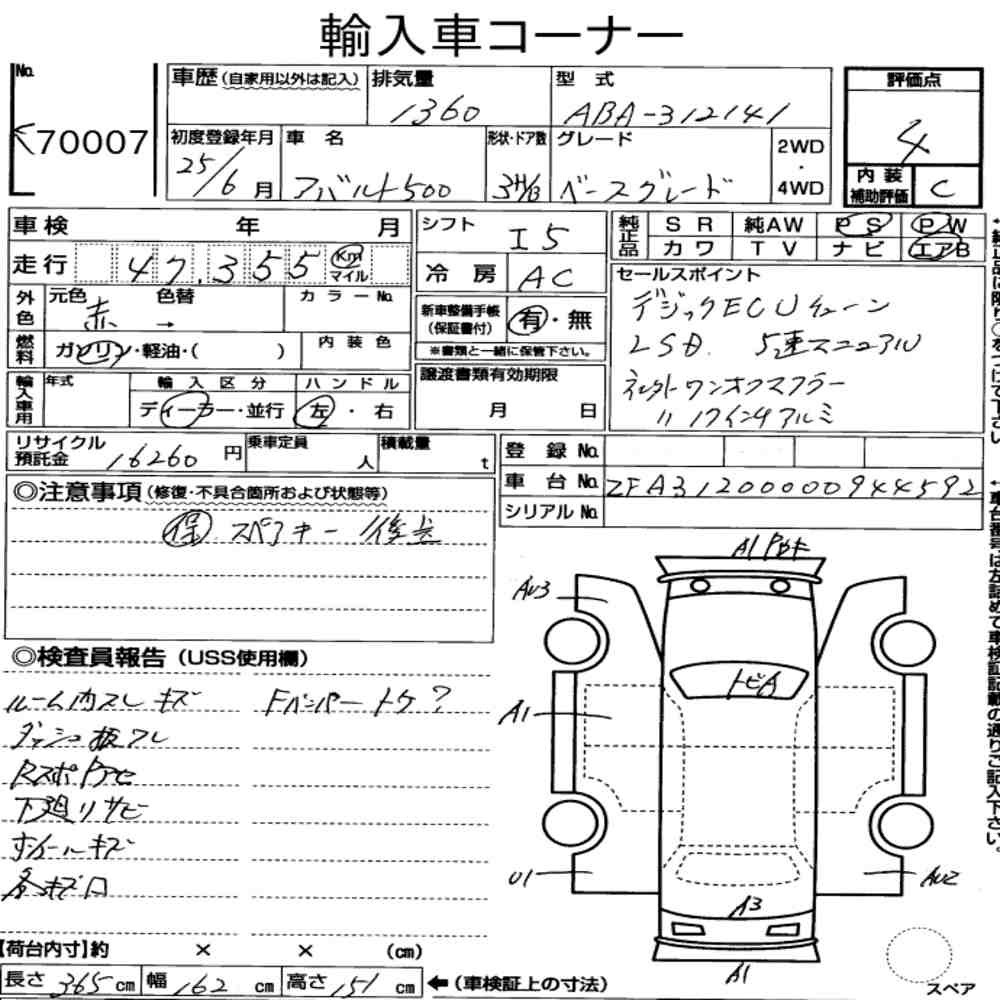 輸入車コーナー
No. 70007
車歴(自家用以外は記入) 排気量 1360 型式 ABA-312141 評価点 4
初度登録年月 25/6月 車名 アバルト500 形状・ドア数 3H/B グレード ベースグレード 2WD・4WD 内装補助評価 C
車検 年 月 シフト I5 純正品 SR 純AW PS PW
走行 47,355 Km マイル 冷房 AC カワ TV ナビ エアB
外色 元色 赤 色替 → カラーNo.
燃料 ガソリン・軽油・( ) 内装色
新車整備手帳(保証書付) 有・無
※書類と一緒に保管下さい。
セールスポイント
デジックECUチューン
LSD. 5速マニュアル
ネルトワンオフマフラー
〃 17インチアルミ
輸入車用 年式 輸入区分 ディーラー・並行 ハンドル 左・右
譲渡書類有効期限 月 日
リサイクル預託金 16260円 乗車定員 人 積載量 t
登録No.
車台No. ZFA31200000944592
シリアルNo.
◎注意事項(修復・不具合箇所および状態等)
保 スペアキー 後送
◎検査員報告(USS使用欄)
ルーム内スレ キズ Fバンパートケ?
ダッシュ板スレ
下廻りサビ
ホイールキズ
各キズ
A1
AU3
トビA
A1
U1
AU2
A3
A1
スペア
【荷台内寸】約 × × (cm)
長さ 365cm 幅 162cm 高さ 151cm ←(車検証上の寸法)